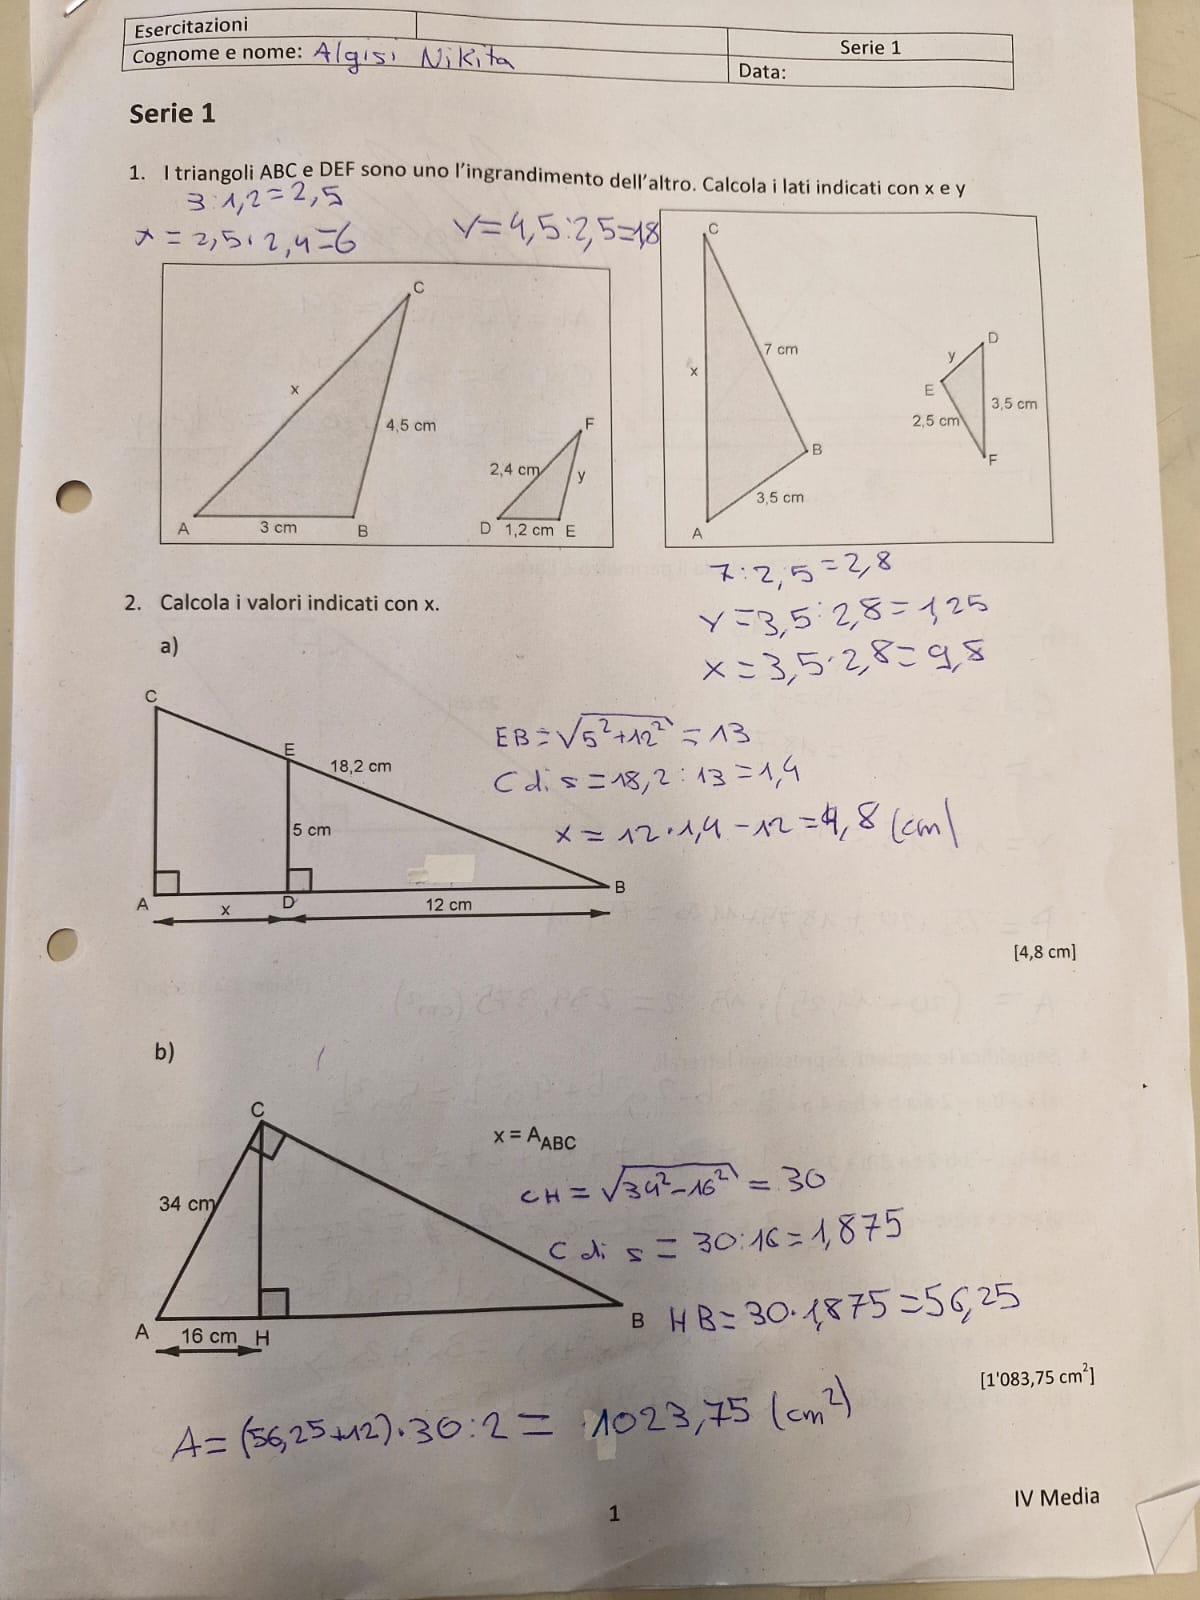 Esercitazioni
Cognome e nome: Algisi Nikita
Serie 1
Data:
Serie 1
1. I triangoli ABC e DEF sono uno l'ingrandimento dell'altro. Calcola i lati indicati con x e y
3:1,2=2,5
x = 2,5·2,4=6
Y=4,5:2,5=1,8
C
x
4,5 cm
A
3 cm
B
F
2,4 cm
y
D 1,2 cm E
C
7 cm
x
B
3,5 cm
A
D
y
E
3,5 cm
2,5 cm
F
7:2,5=2,8
Y=3,5:2,8=1,25
X=3,5·2,8=9,8
2. Calcola i valori indicati con x.
a)
C
E
18,2 cm
5 cm
A
x
D
12 cm
B
EB=√5²+12² = 13
C di s=18,2:13=1,4
x = 12·1,4-12=4,8 (cm)
[4,8 cm]
b)
C
34 cm
A
16 cm H
B
x = AABC
CH = √34²-16² = 30
C di s = 30:16=1,875
HB=30·1,875=56,25
[1'083,75 cm²]
A=(56,25+12)·30:2= 1023,75 (cm²)
1
IV Media